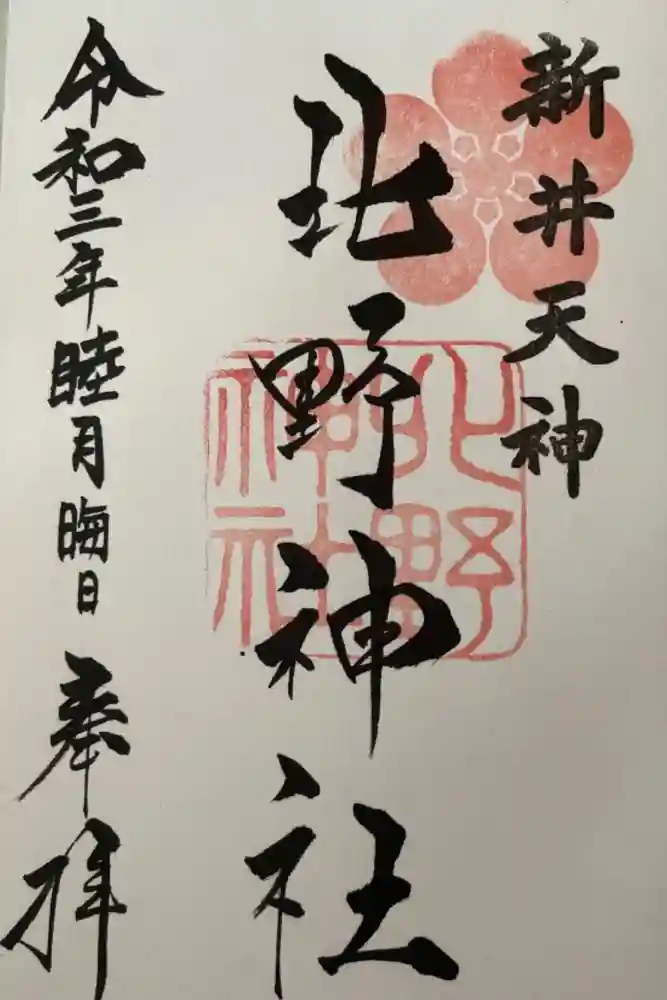 新井天神
北野神社
北野神社
令和三年睦月晦日 奉拝